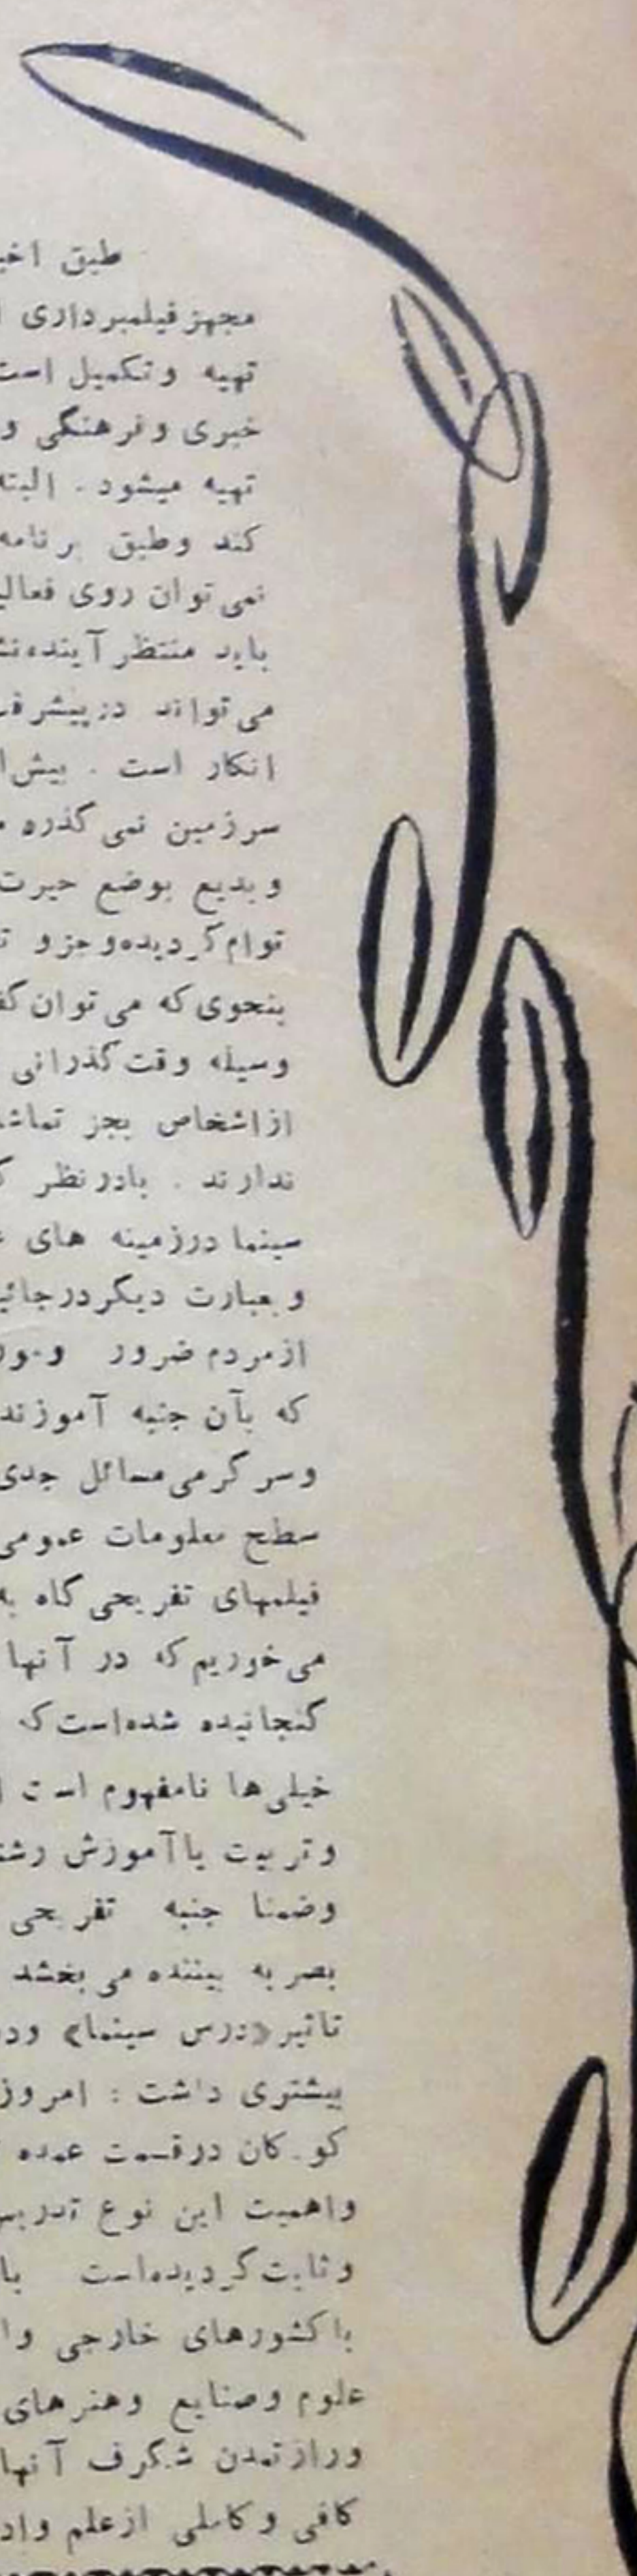 طبق اخی
مجهز فیلمبرداری
تهیه و تکمیل است
خبری و فرهنگی و
تهیه میشود . البته
کند و طبق برنامه
نمی توان روی فعالی
باید منتظر آینده نش
می تواند در پیشرف
انکار است . بیش ا
سرزمین نمی گذرد
و بدیع بوضع حیرت
توام گردیده و جزو
بنحوی که می توان گف
وسیله وقت گذرانی
از اشخاص بجز تماش
ندارند . بادر نظر
سینما در زمینه های
و بعبارت دیگر در جائی
از مردم ضرور و مور
که بآن جنبه آموزند
و سرگرمی مسائل جدی
سطح معلومات عمومی
فیلمهای تفریحی گاه به
می خوریم که در آنها
گنجانیده شده است که
خیلی ها نامفهوم است
و تربیت یا آموزش رشت
وضمنا جنبه تفریحی
بصر به بیننده می بخشد
تاثیر «درس سینما» ود
بیشتری داشت : امروز
کودکان در قسمت عمده
و اهمیت این نوع تدریس
و ثابت گردیده است با
با کشورهای خارجی وا
علوم و صنایع و هنرهای
و راز تمدن شگرف آنها
کافی و کاملی از علم واد